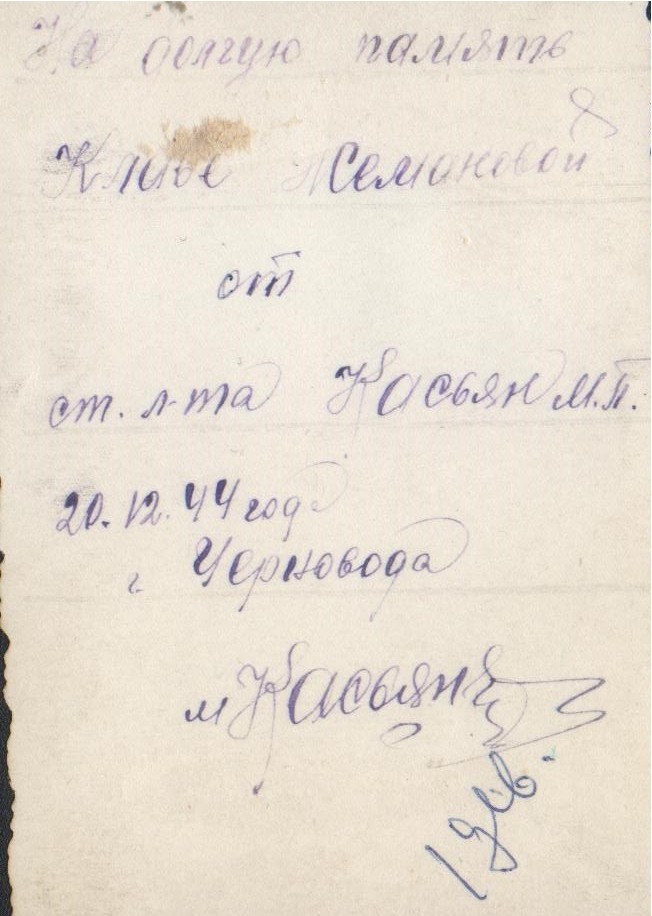 На долгую память
Клаве Жемановой
от
ст. л-та Касьян М.П.
20.12.44 год
г Черновода
м Касьян